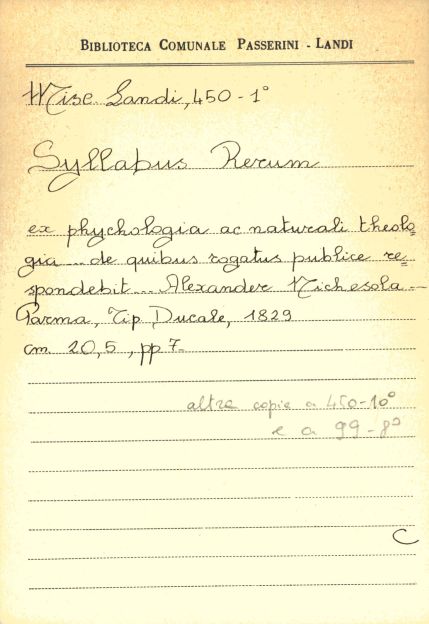 BIBLIOTECA COMUNALE PASSERINI - LANDI
Misc Landi, 450 - 1°
Syllabus Rerum
ex phychologia ac naturali theolo=
gia ... de quibus rogatus publice re=
spondebit ... Alexander Nichesola -
Parma, Tip Ducale, 1829
cm. 20,5, pp 7-
altre copie a 450-10°
e a 99-8°
C